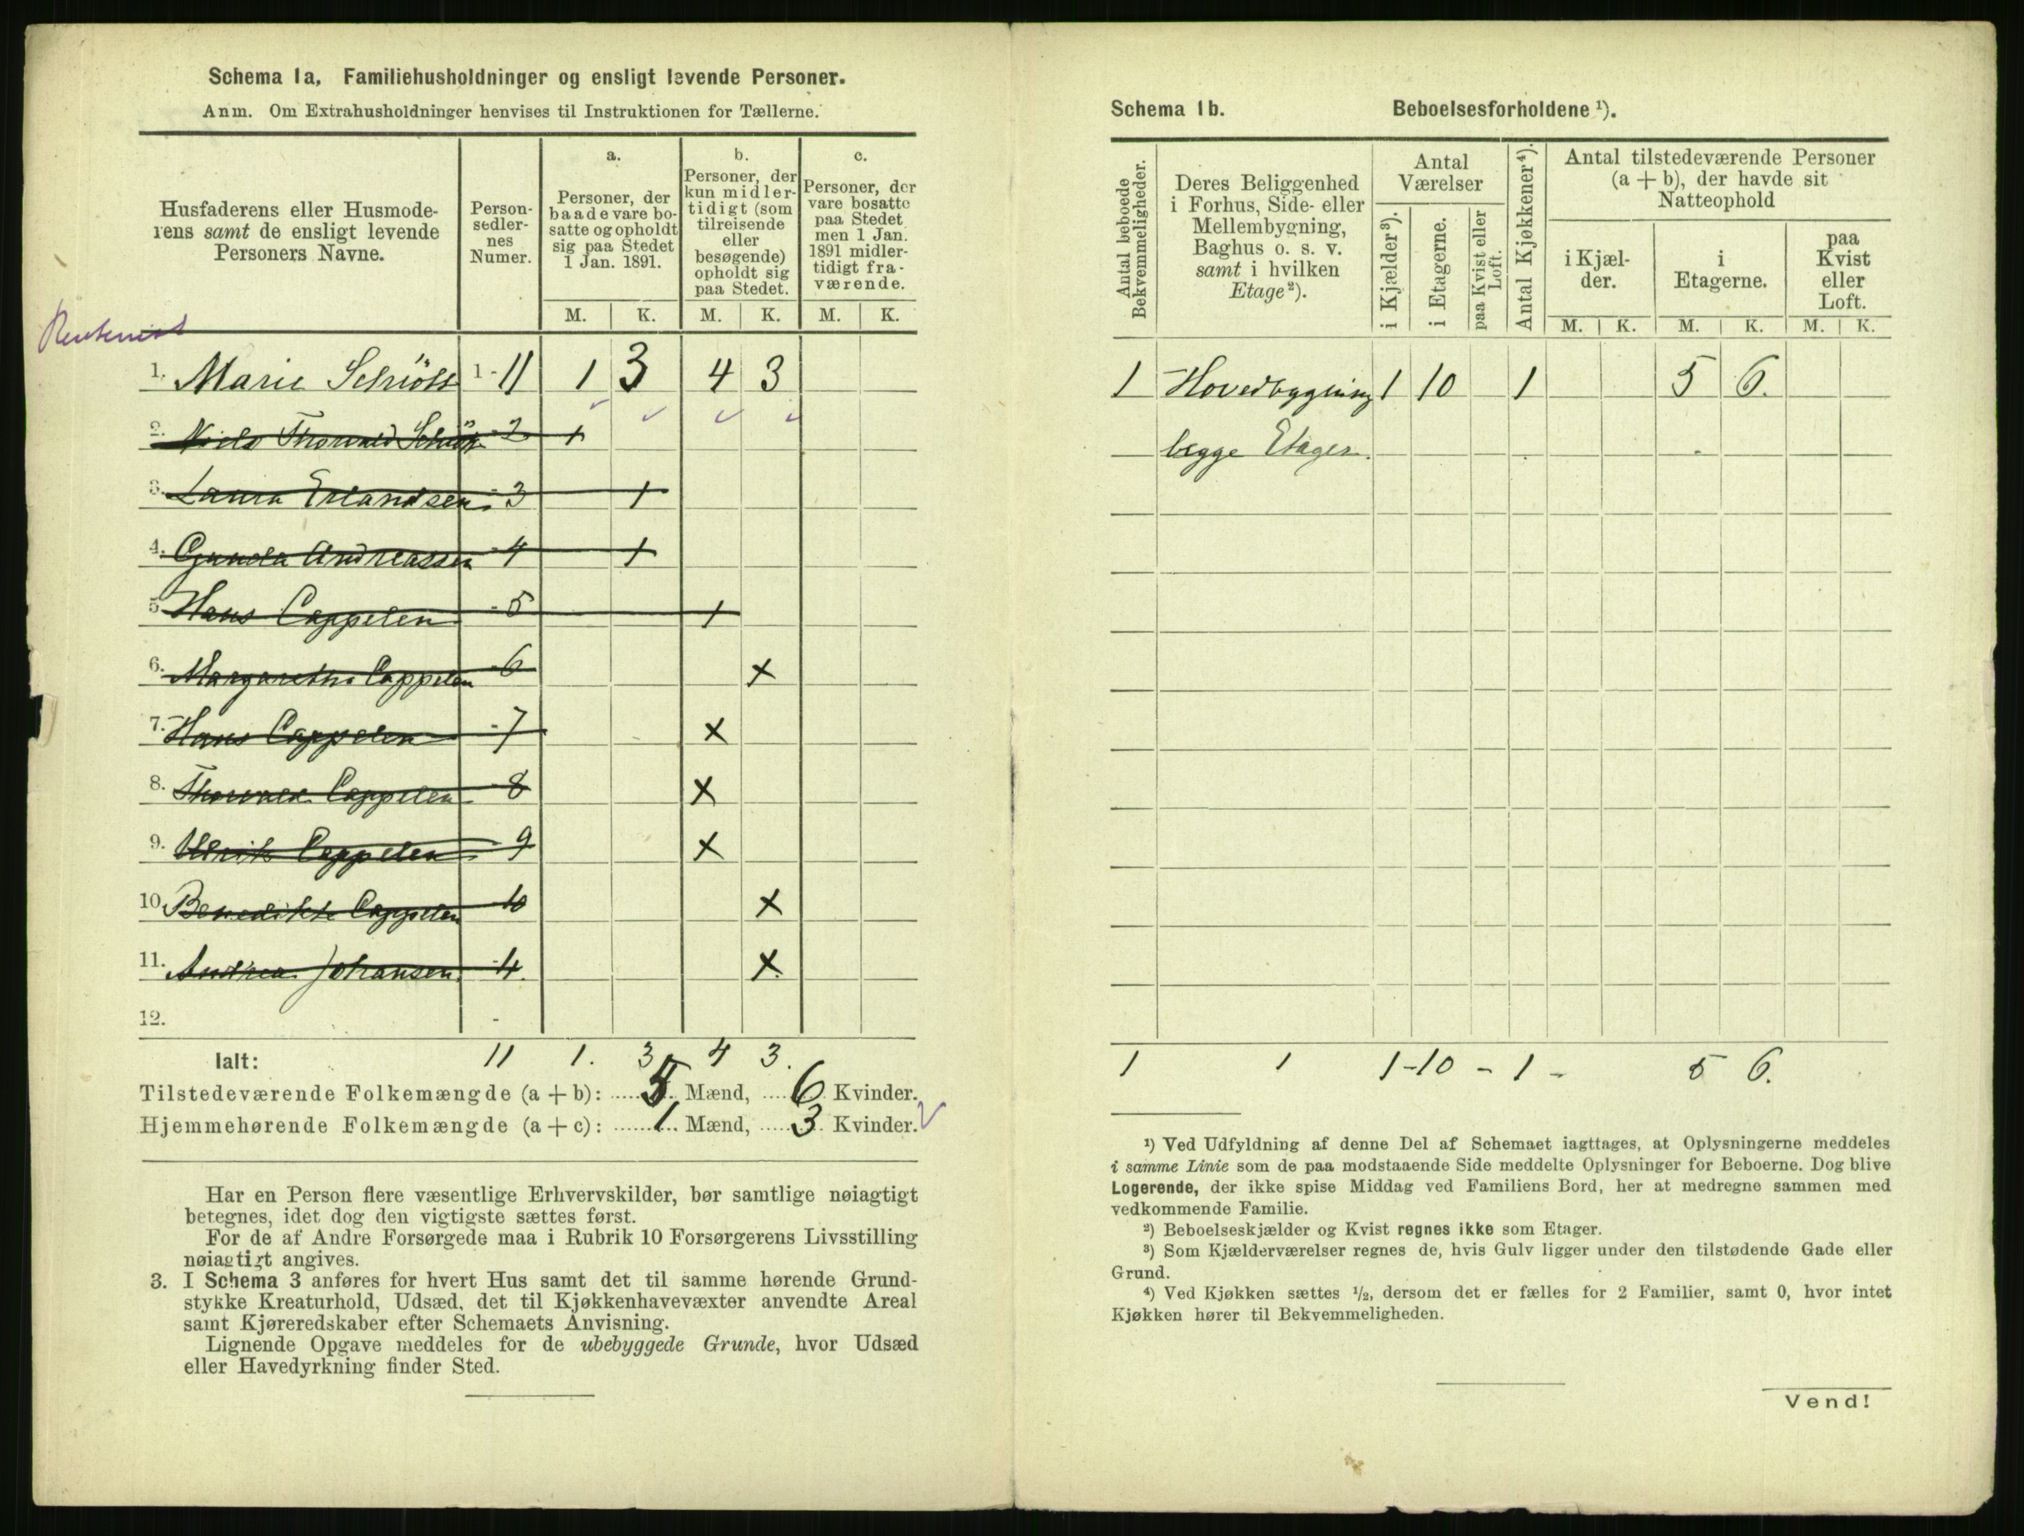 Schema 1a. Familiehusholdninger og ensligt levende Personer.
Anm. Om Extrahusholdninger henvises til Instruktionen for Tællerne.
Husfaderens eller Husmode-
rens samt de ensligt levende
Personers Navne.
Person-
sedler-
nes
Numer.
a.
Personer, der
baade vare bo-
satte og opholdt
sig paa Stedet
1 Jan. 1891.
b.
Personer, der
kun midler-
tidigt (som
tilreisende
eller
besøgende)
opholdt sig
paa Stedet.
c.
Personer, der
vare bosatte
paa Stedet
men 1 Jan.
1891 midler-
tidigt fra-
værende.
M. K. M. K. M. K.
1. Marie Schiött 1 - 11 1 3 4 3
2. Niels Thorvald Schiött - 2 1
3. Laura Erlandsen - 3 1
4. Gunda Andreassen - 4 1
5. Hans Cappelen - 5 1
6. Margarethe Cappelen - 6 x
7. Hans Cappelen - 7 x
8. Thorvald Cappelen - 8 x
9. Ulrik Cappelen - 9 x
10. Benedikte Cappelen - 10 x
11. Andrea Johansen - x
12. -
Ialt: 11 1. 3 4 3.
Tilstedeværende Folkemængde (a + b): 5 Mænd, 6 Kvinder.
Hjemmehørende Folkemængde (a + c): 1 Mænd, 3 Kvinder.
Har en Person flere væsentlige Erhvervskilder, bør samtlige nøiagtigt
betegnes, idet dog den vigtigste sættes først.
For de af Andre Forsørgede maa i Rubrik 10 Forsørgerens Livsstilling
nøiagtigt angives.
3. I Schema 3 anføres for hvert Hus samt det til samme hørende Grund-
stykke Kreaturhold, Udsæd, det til Kjøkkenhavevæxter anvendte Areal
samt Kjøreredskaber efter Schemaets Anvisning.
Lignende Opgave meddeles for de ubebyggede Grunde, hvor Udsæd
eller Havedyrkning finder Sted.
Schema 1b. Beboelsesforholdene ¹).
Antal beboede
Bekvemmeligheder.
Deres Beliggenhed
i Forhus, Side- eller
Mellembygning,
Baghus o. s. v.
samt i hvilken
Etage²).
Antal
Værelser
i Kjælder³).
i Etagerne.
paa Kvist eller
Loft.
Antal Kjøkkener⁴).
Antal tilstedeværende Personer
(a + b), der havde sit
Natteophold
i Kjæl-
der.
i
Etagerne.
paa
Kvist
eller
Loft.
M. K. M. K. M. K.
1 Hovedbygning 1 10 1 5 6.
begge Etager.
1 1 1 - 10 - 1 - 5 6.
¹) Ved Udfyldning af denne Del af Schemaet iagttages, at Oplysningerne meddeles
i samme Linie som de paa modstaaende Side meddelte Oplysninger for Beboerne. Dog blive
Logerende, der ikke spise Middag ved Familiens Bord, her at medregne sammen med
vedkommende Familie.
²) Beboelseskjælder og Kvist regnes ikke som Etager.
³) Som Kjælderværelser regnes de, hvis Gulv ligger under den tilstødende Gade eller
Grund.
⁴) Ved Kjøkken sættes ½, dersom det er fælles for 2 Familier, samt 0, hvor intet
Kjøkken hører til Bekvemmeligheden.
Vend!